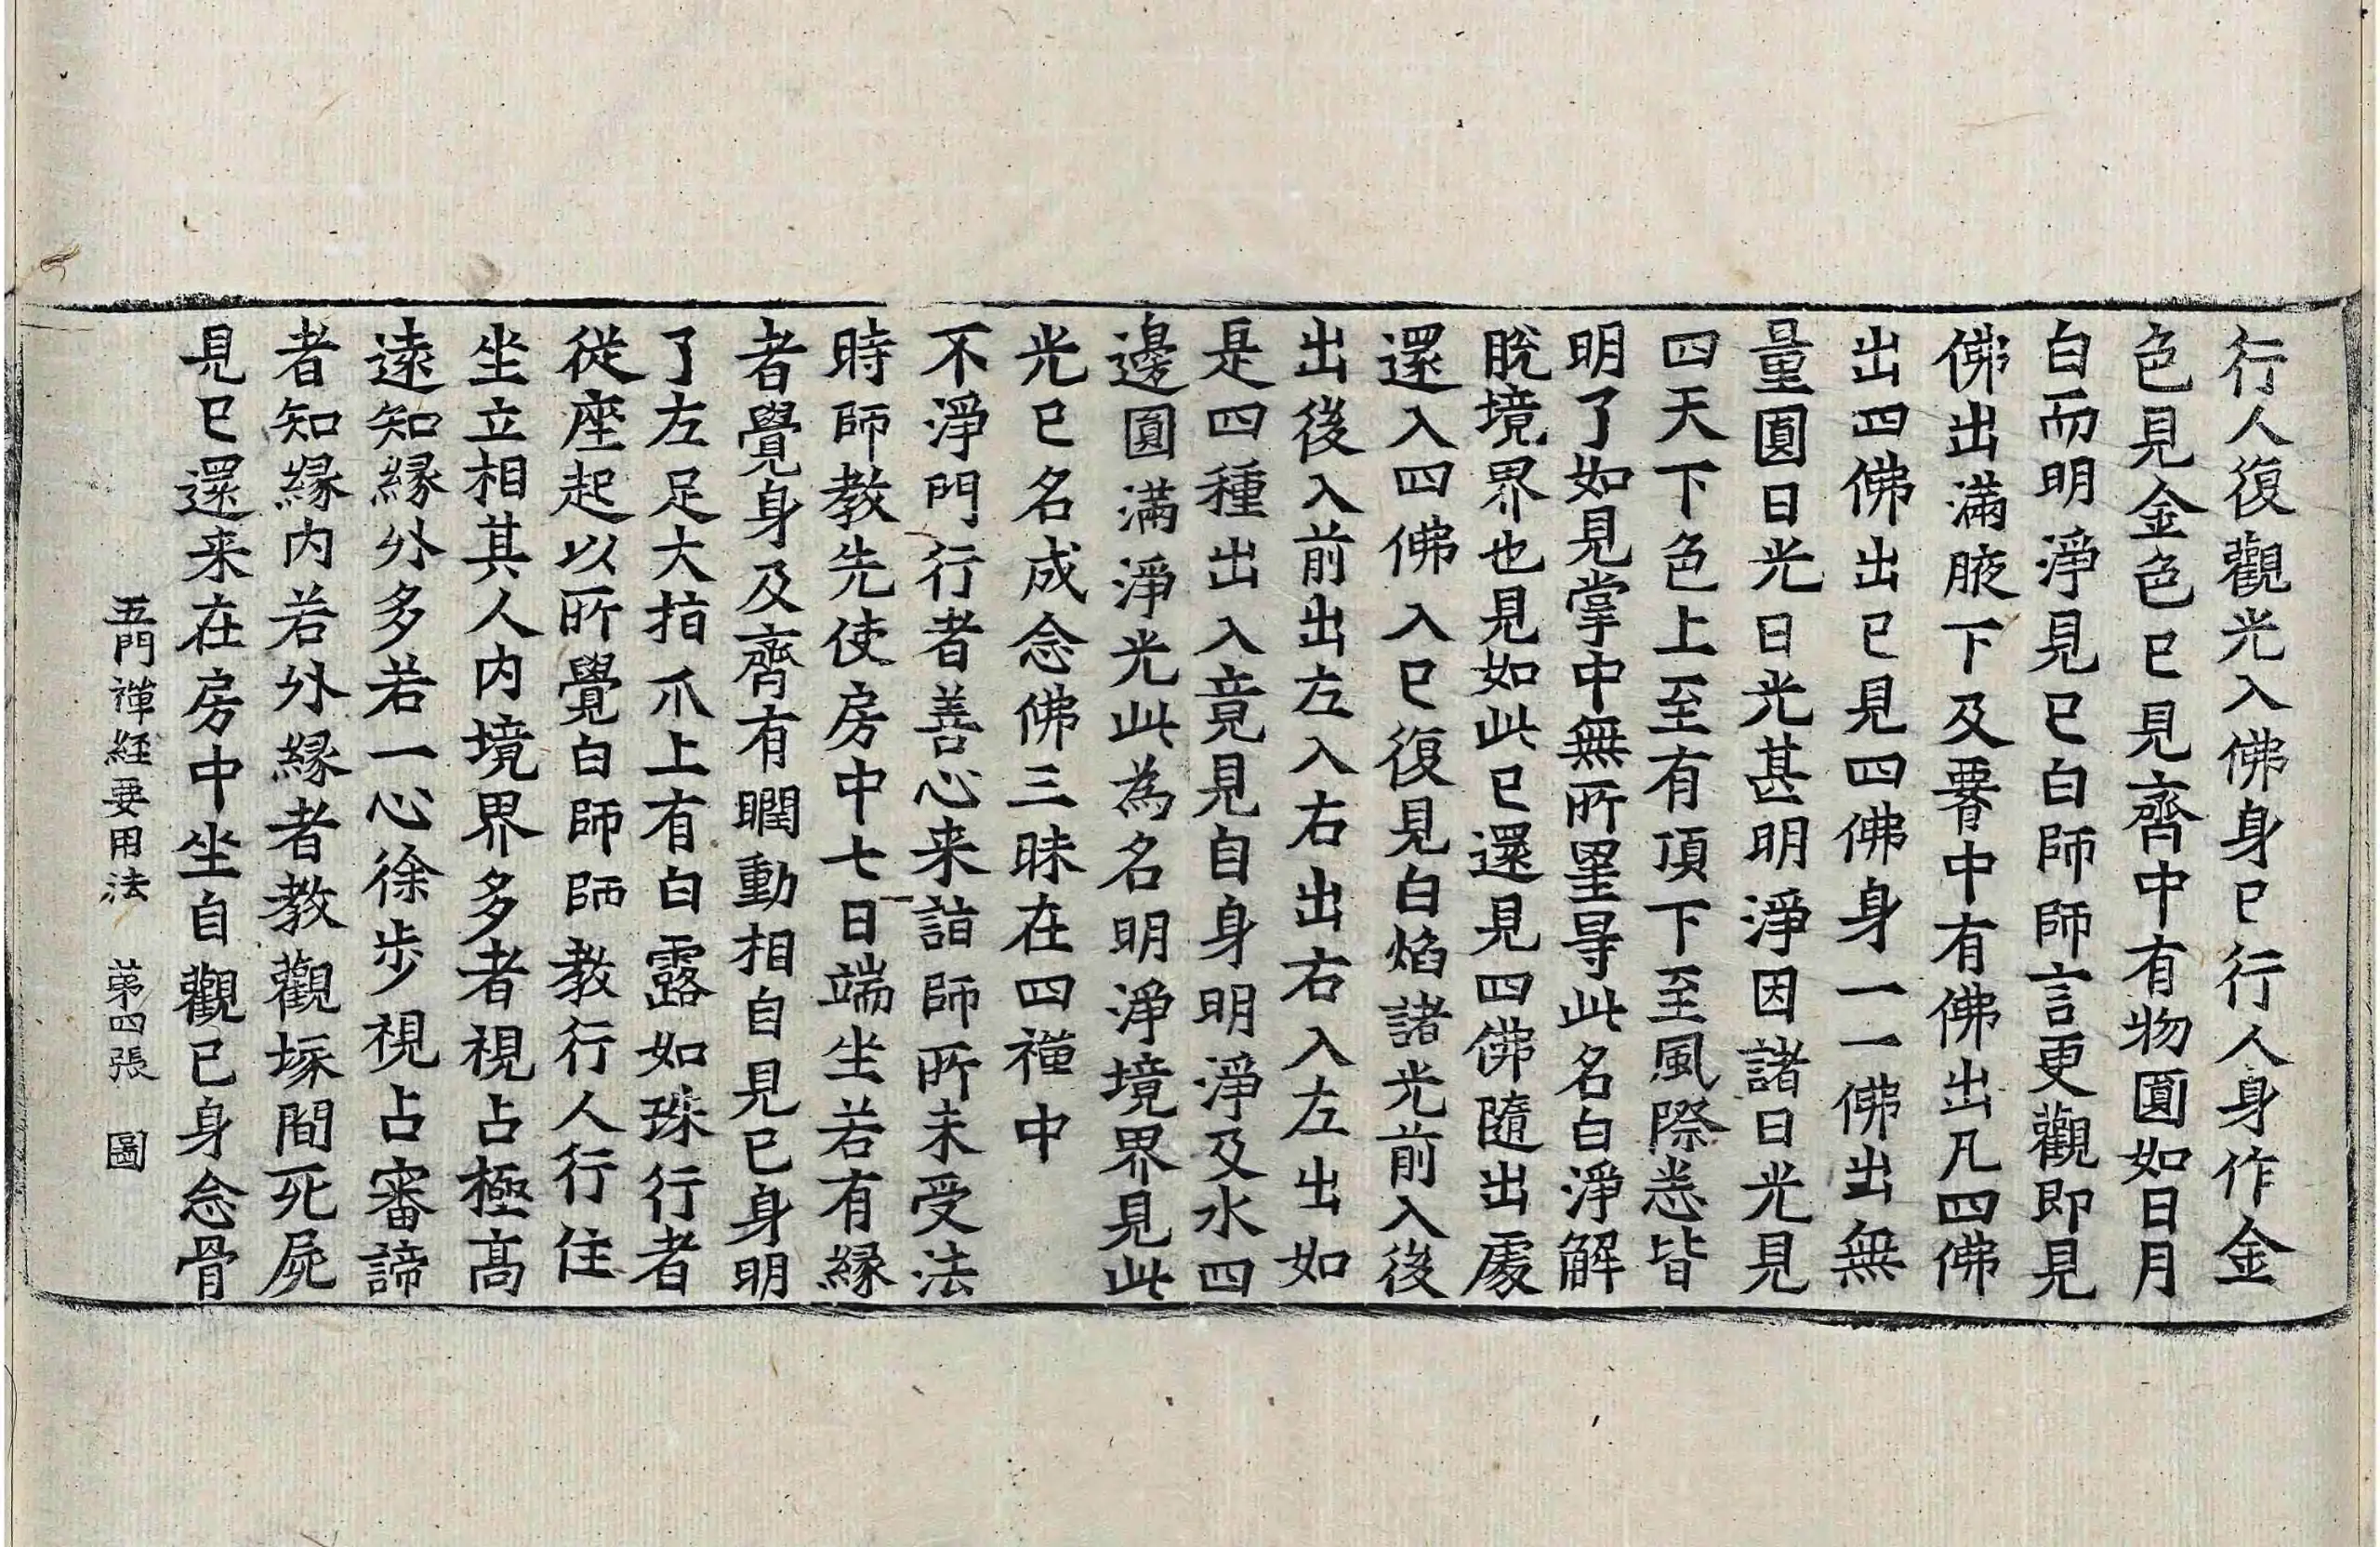 行人復觀光入佛身已行人身作金
色見金色已見齊中有物圓如日月
白而明淨見已白師師言更觀即見
佛出滿腋下及𦝫中有佛出凡四佛
出四佛出已見四佛身一一佛出無
量圓日光日光甚明淨因諸日光見
四天下色上至有頂下至風際悉皆
明了如見掌中無所罣㝵此名白淨解
脫境界也見如此已還見四佛隨出處
還入四佛入已復見白焰諸光前入後
出後入前出左入右出右入左出如
是四種出入竟見自身明淨及水四
邊圓滿淨光此為名明淨境界見此
光已名成念佛三昧在四禪中
不淨門行者善心来詣師所未受法
時師教先使房中七日端坐若有緣
者覺身及齊有瞤動相自見已身明
了左足大指爪上有白露如珠行者
從座起以所覺白師師教行人行住
坐立相其人內境界多者視占極高
遠知緣外多若一心徐步視占審諦
者知緣內若外緣者教觀塚間死屍
見已還来在房中坐自觀已身念骨
五門禪經要用法　第四張　圖